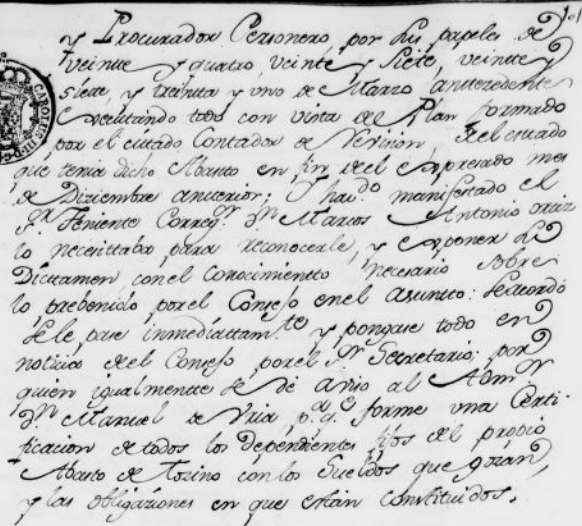 y Procurador Personero, por sus papeles de
veinte y quatro, veinte y siete, veinte y
siete, y treinta y uno de Marzo antecedente
executando todo con vista de Plan formado
por el citado Contador de Revision, del estado
que tenia dicho Abasto en fin del expresado mes
de Diziembre anterior; Y hau.do manifestado el
S.r Teniente Correg.r D.n Marcos Antonio Ortiz
lo necesittaba para reconocerle, y exponer su
Dicttamen, con el conocimientto necesario sobre
lo prebenido por el Consejo en el asuntto: se acordó
se le pase inmediattam.te y pongase todo en
noticia del Consejo, por el S.r Secretario; por
quien igualmente se dé aviso al Adm.or
D.n Manuel de Vria, p.a q.e forme una Certi-
ficacion de todos los Dependientes fijos del propio
Abasto de Tozino con los Sueldos que gozan,
y las obligaziones en que estan constituidos.